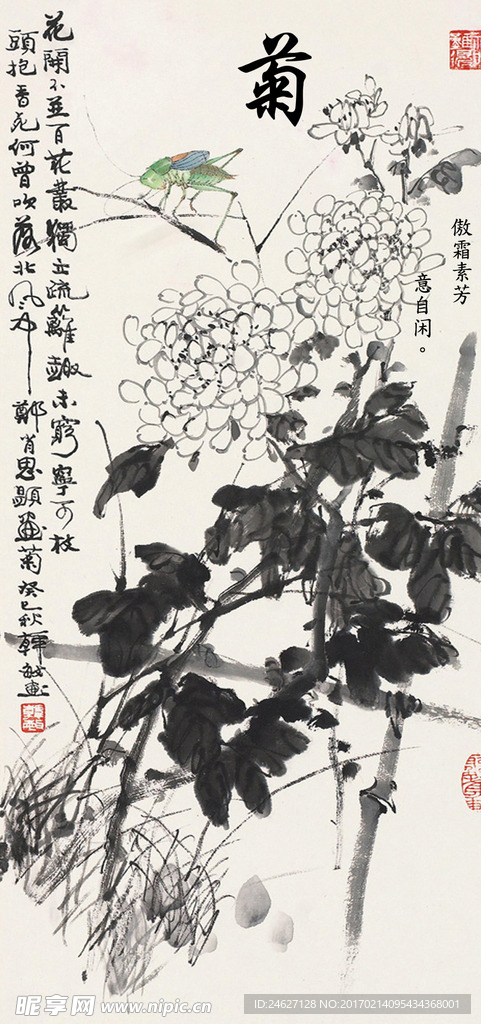 菊
傲霜素芳
意自闲。
花開不並百花叢獨立疏籬趣未窮寧可枝
頭抱香死何曾吹落北風中 鄭肖思題畫菊 癸巳秋韓敏畫
昵享网 www.nipic.cn
ID:24627128 NO:20170214095434368001